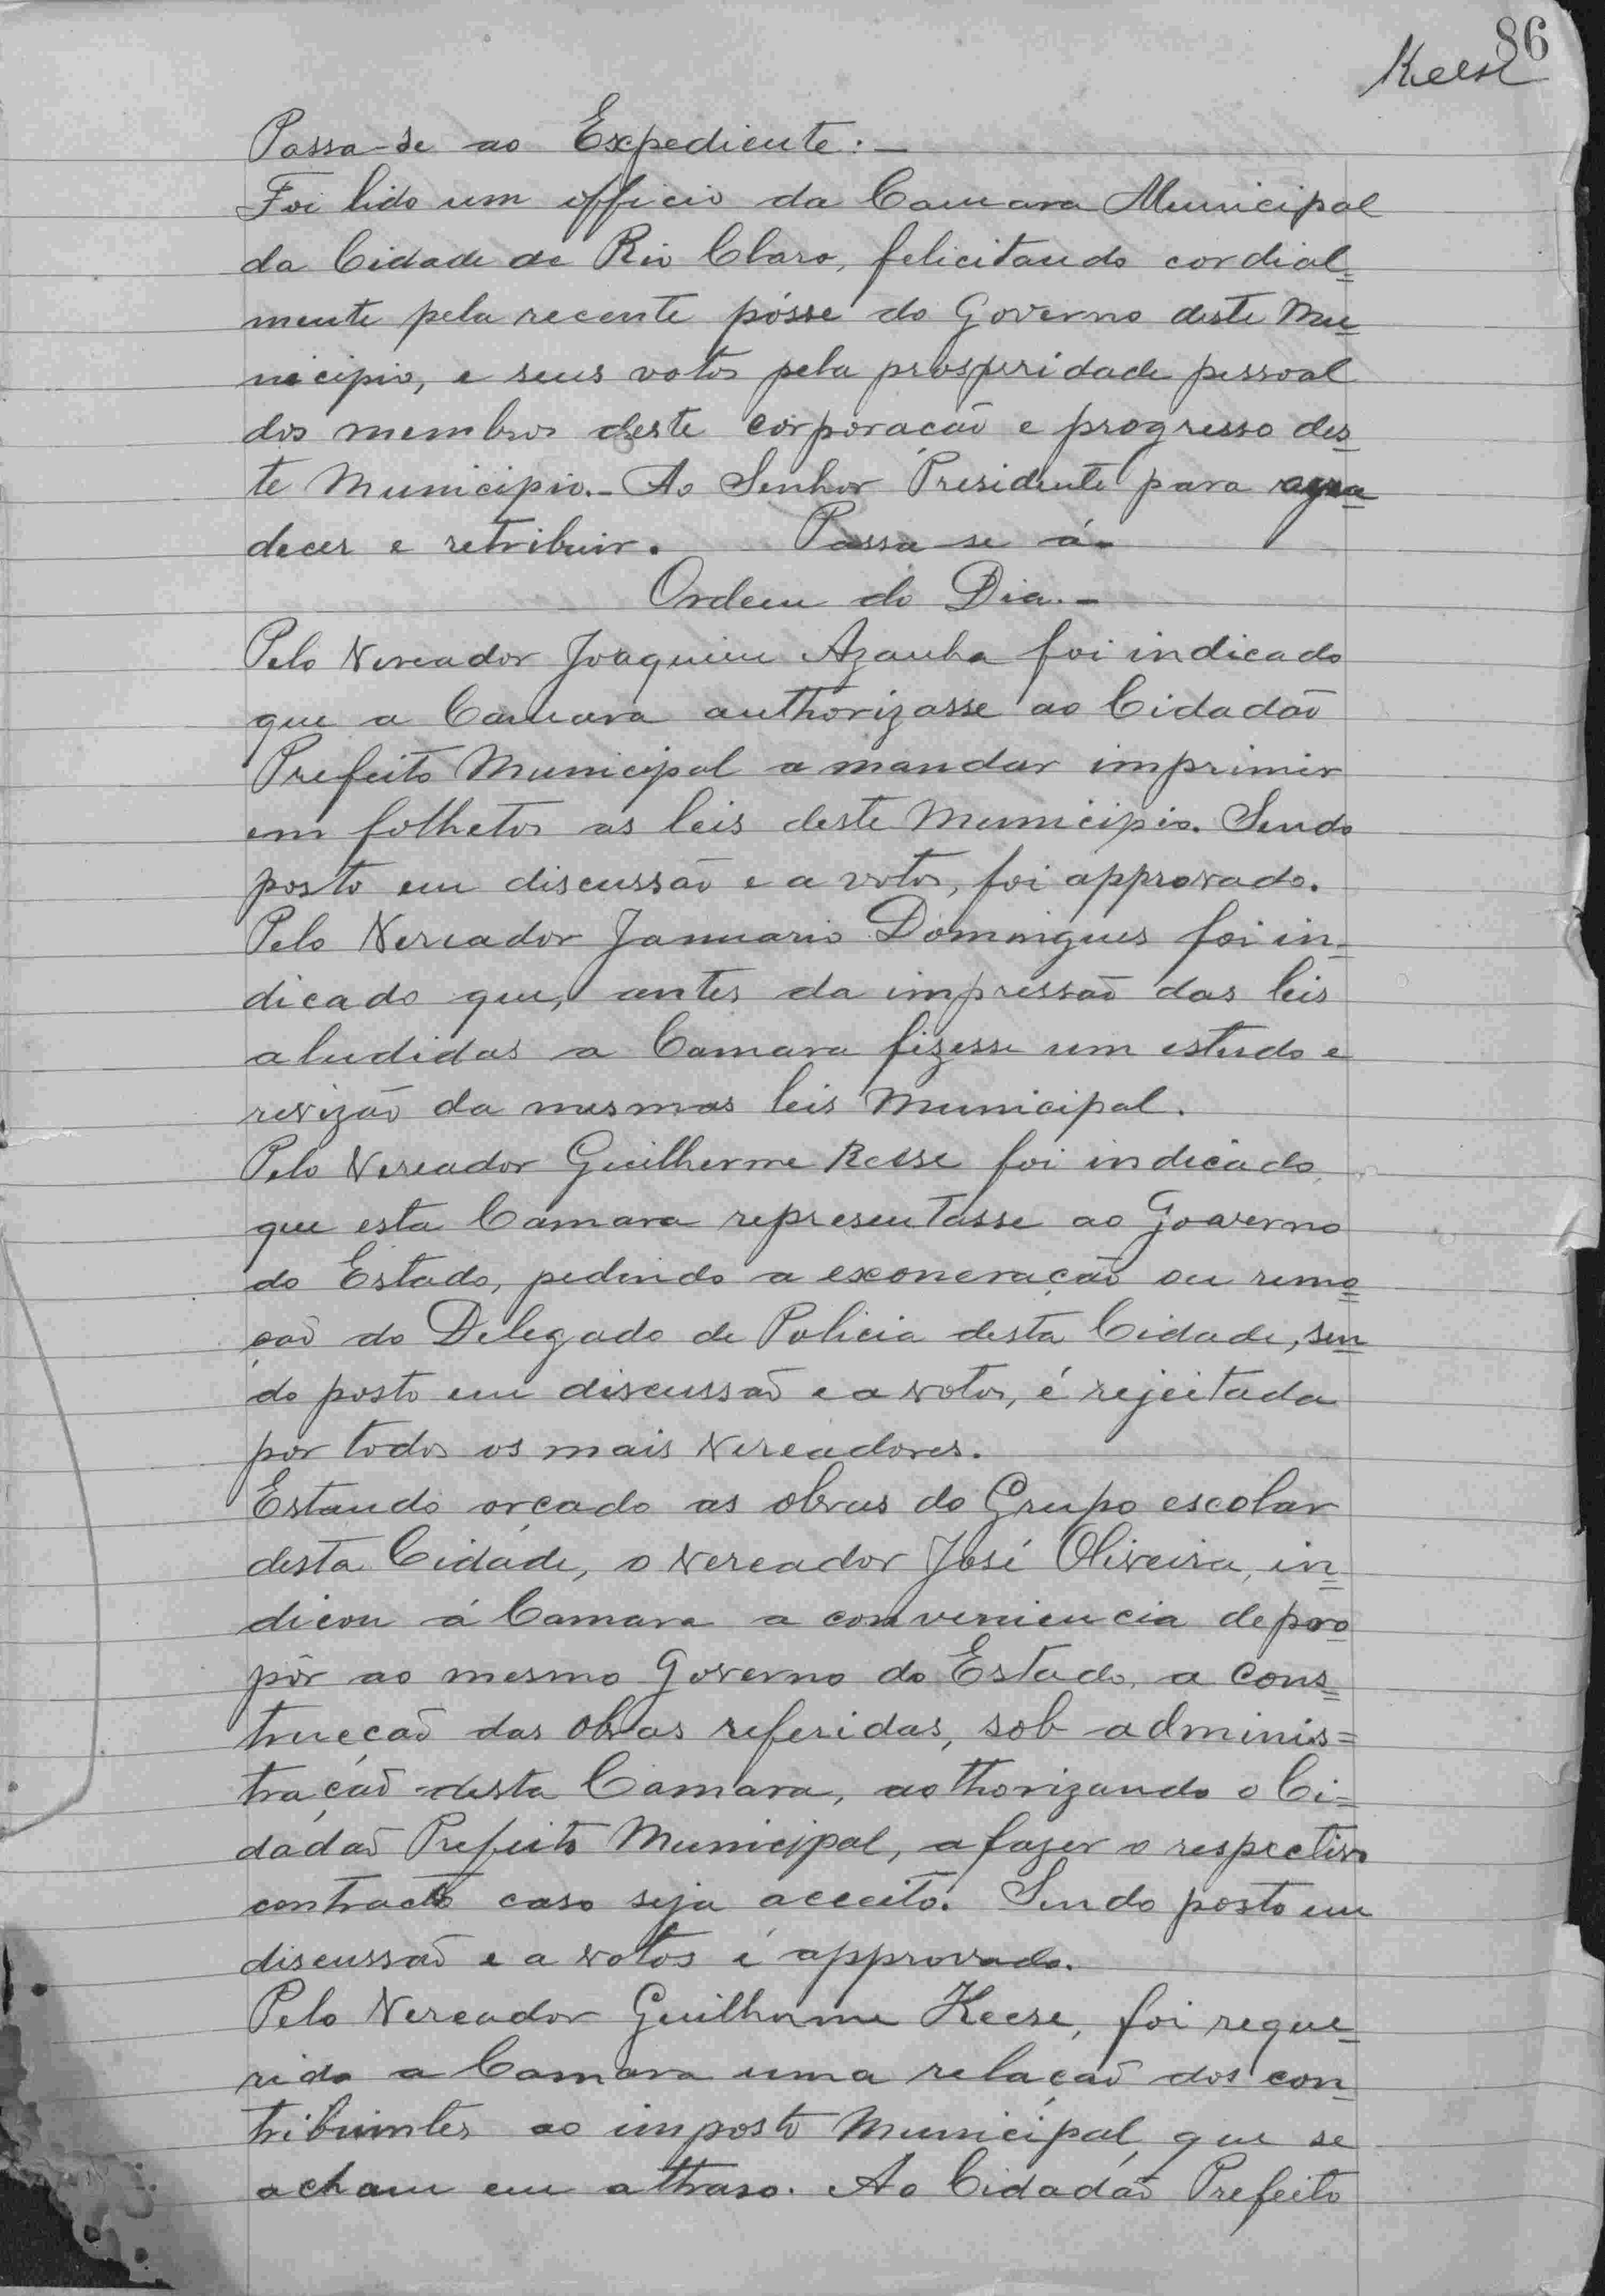 86
Keese
Passa-se ao Expediente:-
Foi lido um officio da Camara Municipal
da Cidade de Rio Claro, felicitando cordial=
mente pela recente pósse do Governo deste Mu=
nicipio, e seus votos pela prosperidade pessoal
dos membros deste corporação e progresso des=
te Municipio.- Ao Senhor Presidente para agra=
decer e retribuir. Passa-se á-
Ordem do Dia.-
Pelo Vereador Joaquim Azanha foi indicado
que a Camara authorizasse ao Cidadão
Prefeito Municipal a mandar imprimir
em folhetos as leis deste Municipio. Sendo
posto em discussão e a votos, foi approvado.
Pelo Vereador Januario Domingues foi in=
dicado que, antes da impressão das leis
aludidas a Camara fizesse um estudo e
revizão da mesmas leis Municipal.
Pelo Vereador Guilherme Kesse foi indicado
que esta Camara representasse ao Goaverno
do Estado, pedindo a exoneração ou remo=
ção do Delegado de Policia desta Cidade, sen=
do posto em discussão e a votos, é rejeitada
por todos os mais Vereadores.
Estando orçado as obras do Grupo escolar
desta Cidade, o Vereador José Oliveira, in=
dicou á Camara a conveniencia de pro=
pôr ao mesmo Governo do Estado, a cons=
trucção das obras referidas, sob adminis=
tração desta Camara, aothorizando o Ci=
dadão Prefeito Municipal, a fazer o respectivo
contracto caso seja acceito. Sendo posto em
discussão e a votos é approvado.
Pelo Vereador Guilherme Keese, foi reque=
rido a Camara uma relação dos con=
tribuintes ao imposto Municipal, que se
acham em athraso. Ao Cidadão Prefeito